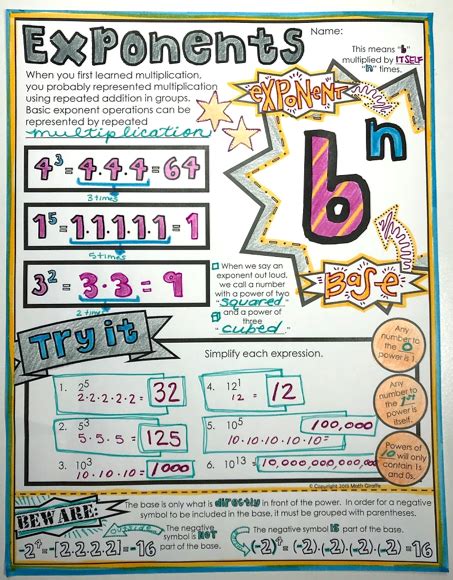 Exponents
Name:
This means "b"
multiplied by ITSELF
"n" times.
When you first learned multiplication,
you probably represented multiplication
using repeated addition in groups.
Basic exponent operations can be
represented by repeated
multiplication
EXPONENT
bⁿ
Base
4³ = 4·4·4 = 64
3 times
1⁵ = 1·1·1·1·1 = 1
5 times
3² = 3·3 = 9
2 times
When we say an
exponent out loud,
we call a number
with a power of two
"squared"
and a power of
three
"cubed"
Try it
Simplify each expression.
Any
number to
the 0
power is 1.
Any
number to
the 1st
power is
itself.
Powers of
10 will only
contain 1s
and 0s.
1. 2⁵
2·2·2·2·2 = 32
2. 5³
5·5·5 = 125
3. 10³
10·10·10 = 1000
4. 12¹
12 = 12
5. 10⁵ 100,000
10·10·10·10·10=
6. 10¹³ = 10,000,000,000,000
© Copyright 2015 Math Giraffe
BEWARE:
The base is only what is directly in front of the power. In order for a negative
symbol to be included in the base, it must be grouped with parentheses.
The negative
symbol is NOT
part of the base.
-2⁴=-[2·2·2·2]=-16
The negative symbol IS part of the base.
(-2)⁴=(-2)·(-2)·(-2)·(-2)=16